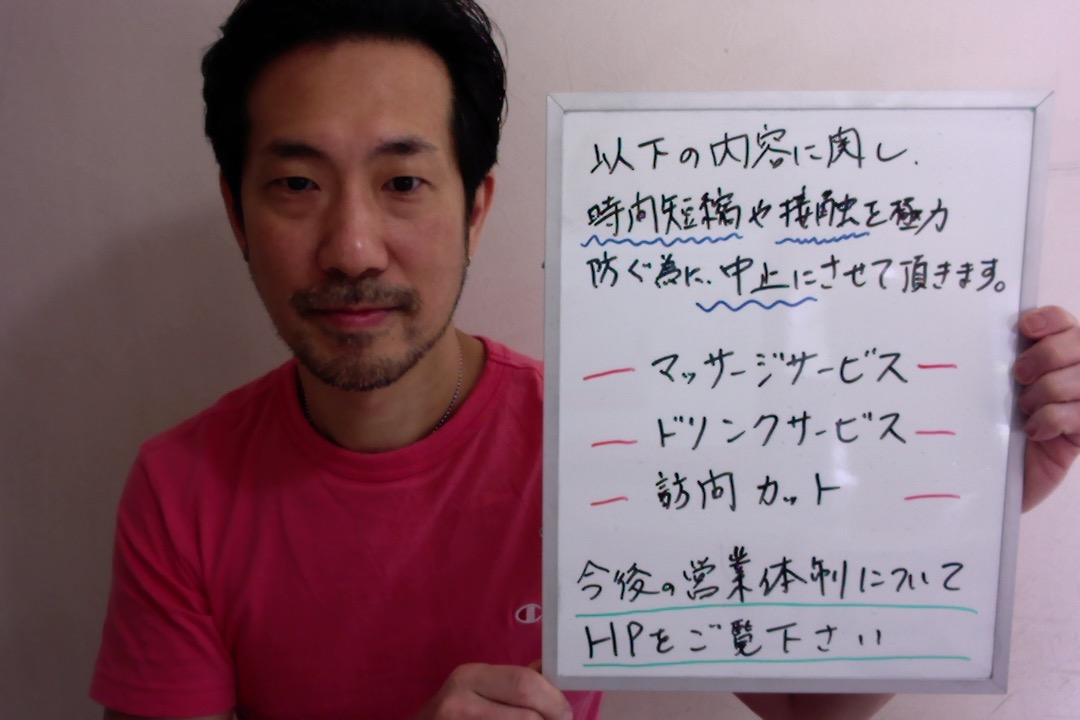 以下の内容に関し、
時間短縮や接触を極力
防ぐ為に、中止にさせて頂きます。
マッサージサービス
ドリンクサービス
訪問カット
今後の営業体制について
HPをご覧下さい